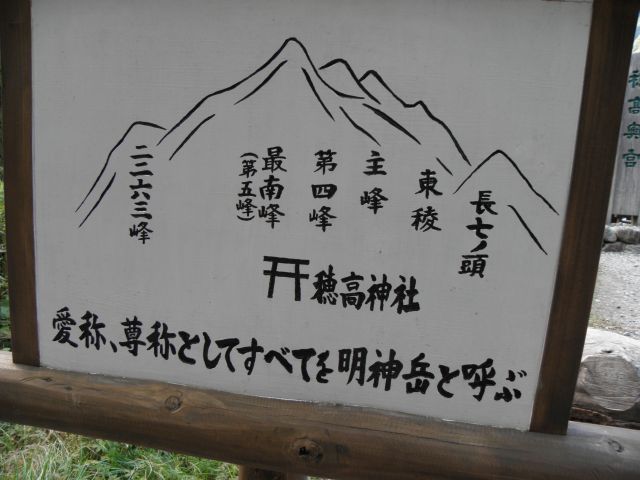 二二六三峰
最南峰
(第五峰)
第四峰
主峰
東稜
長七ノ頭
穂高神社
愛称、尊称としてすべてを明神岳と呼ぶ
穂高奥宮